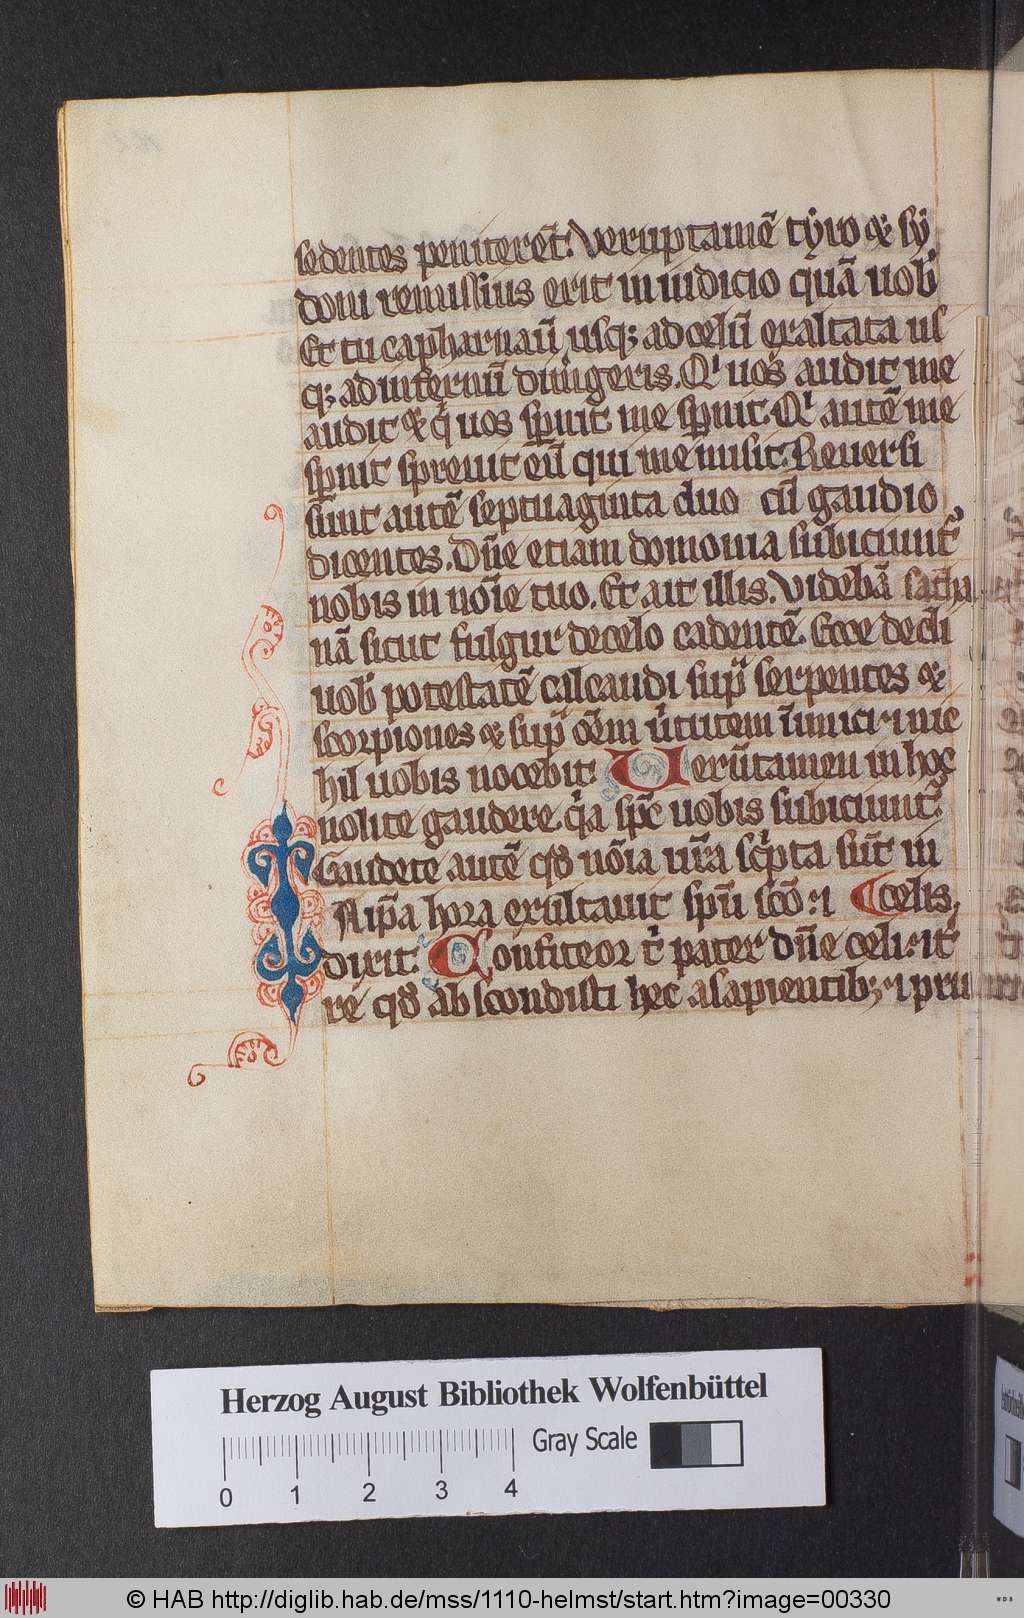 sedentes peniterēt. Veruptamē tẏro ⁊ sẏ
doni remissius erit in iudicio quā uob᷒
Et tu capharnaū usq; ad celū exaltata us
q; ad infernū dim̄geris. Qͥ uos audit me
audit ⁊ qͥ uos sp̱nit me sp̱nit. Qͥ autē me
sp̱nit spreuit eū qui me misit. Reuersi
sunt autē septuaginta duo cū gaudio
dicentes. Dn̄e etiam domonia subiciunt᷒
nobis in nōie tuo. Et ait illis. Videbā satha
nā sicut fulgur de celo cadentē. Ecce dedi
uob᷒ potestatē calcandi sup̄ serpentes ⁊
scorpiones ⁊ sup̄ om̄em ůtutem inimici ⁊ nic
hil uobis nocebit. Uerūtamen in hoc
nolite gaudere qͥa sp̄c uobis subiciunt᷒.
Gaudete autē qd̄ nōia ur̄a scͥpta sūt in
N ip̄a hora exultauit spū scō: ⁊ celis.
dixit. Confiteor tͥ pater dn̄e celi: ⁊ t᷒
re qd̄ abscondisti hec a sapientib; ⁊ pru
Herzog August Bibliothek Wolfenbüttel
Gray Scale
0 1 2 3 4
© HAB http://diglib.hab.de/mss/1110-helmst/start.htm?image=00330